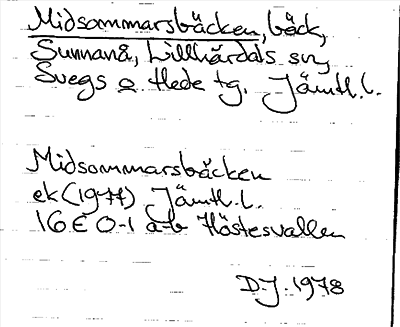 Midsommarsbäcken, bäck,
Sunnanå, Lillhärdals sn,
Svegs o Hede tg. Jämtl. l.
Midsommarsbäcken
ek (1977) Jämtl. l.
16 E 0-1 a-b Höstesvallen
D.J. 1978